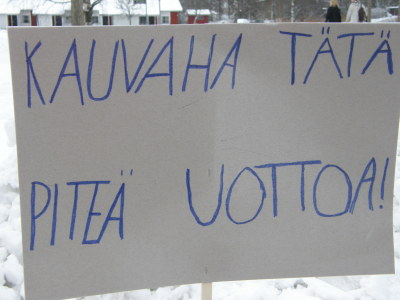 KAUVAHA TÄTÄ
PITEÄ UOTTOA!